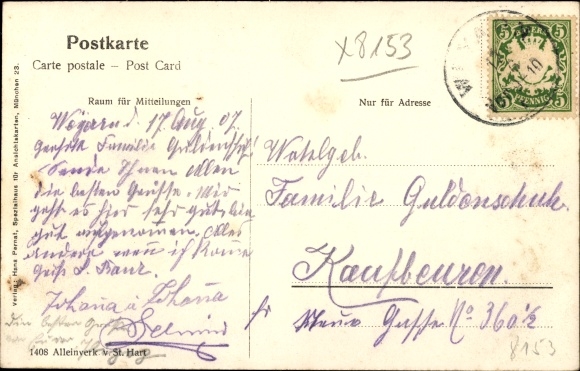 Postkarte
Carte postale – Post Card
Raum für Mitteilungen
Nur für Adresse
x8153
5 5
PFENNIG
Weyarn d. 17. Aug 07.
Geehrte Familie Guldenschuh!
Sende Ihnen Allen
die besten Grüsse. Wir
geht es hier sehr gut, bin
gut aufgenomen. Alles
andere wenn ich komme
Johana u. Johana
Wohlgeb.
Familie Guldenschuh.
Kaufbeuren.
Neue Gasse No 360 1/2
8153
1408 Alleinverk v. St. Hart
Verlag: Hans Pernat, Spezialhaus für Ansichtskarten, München 23.